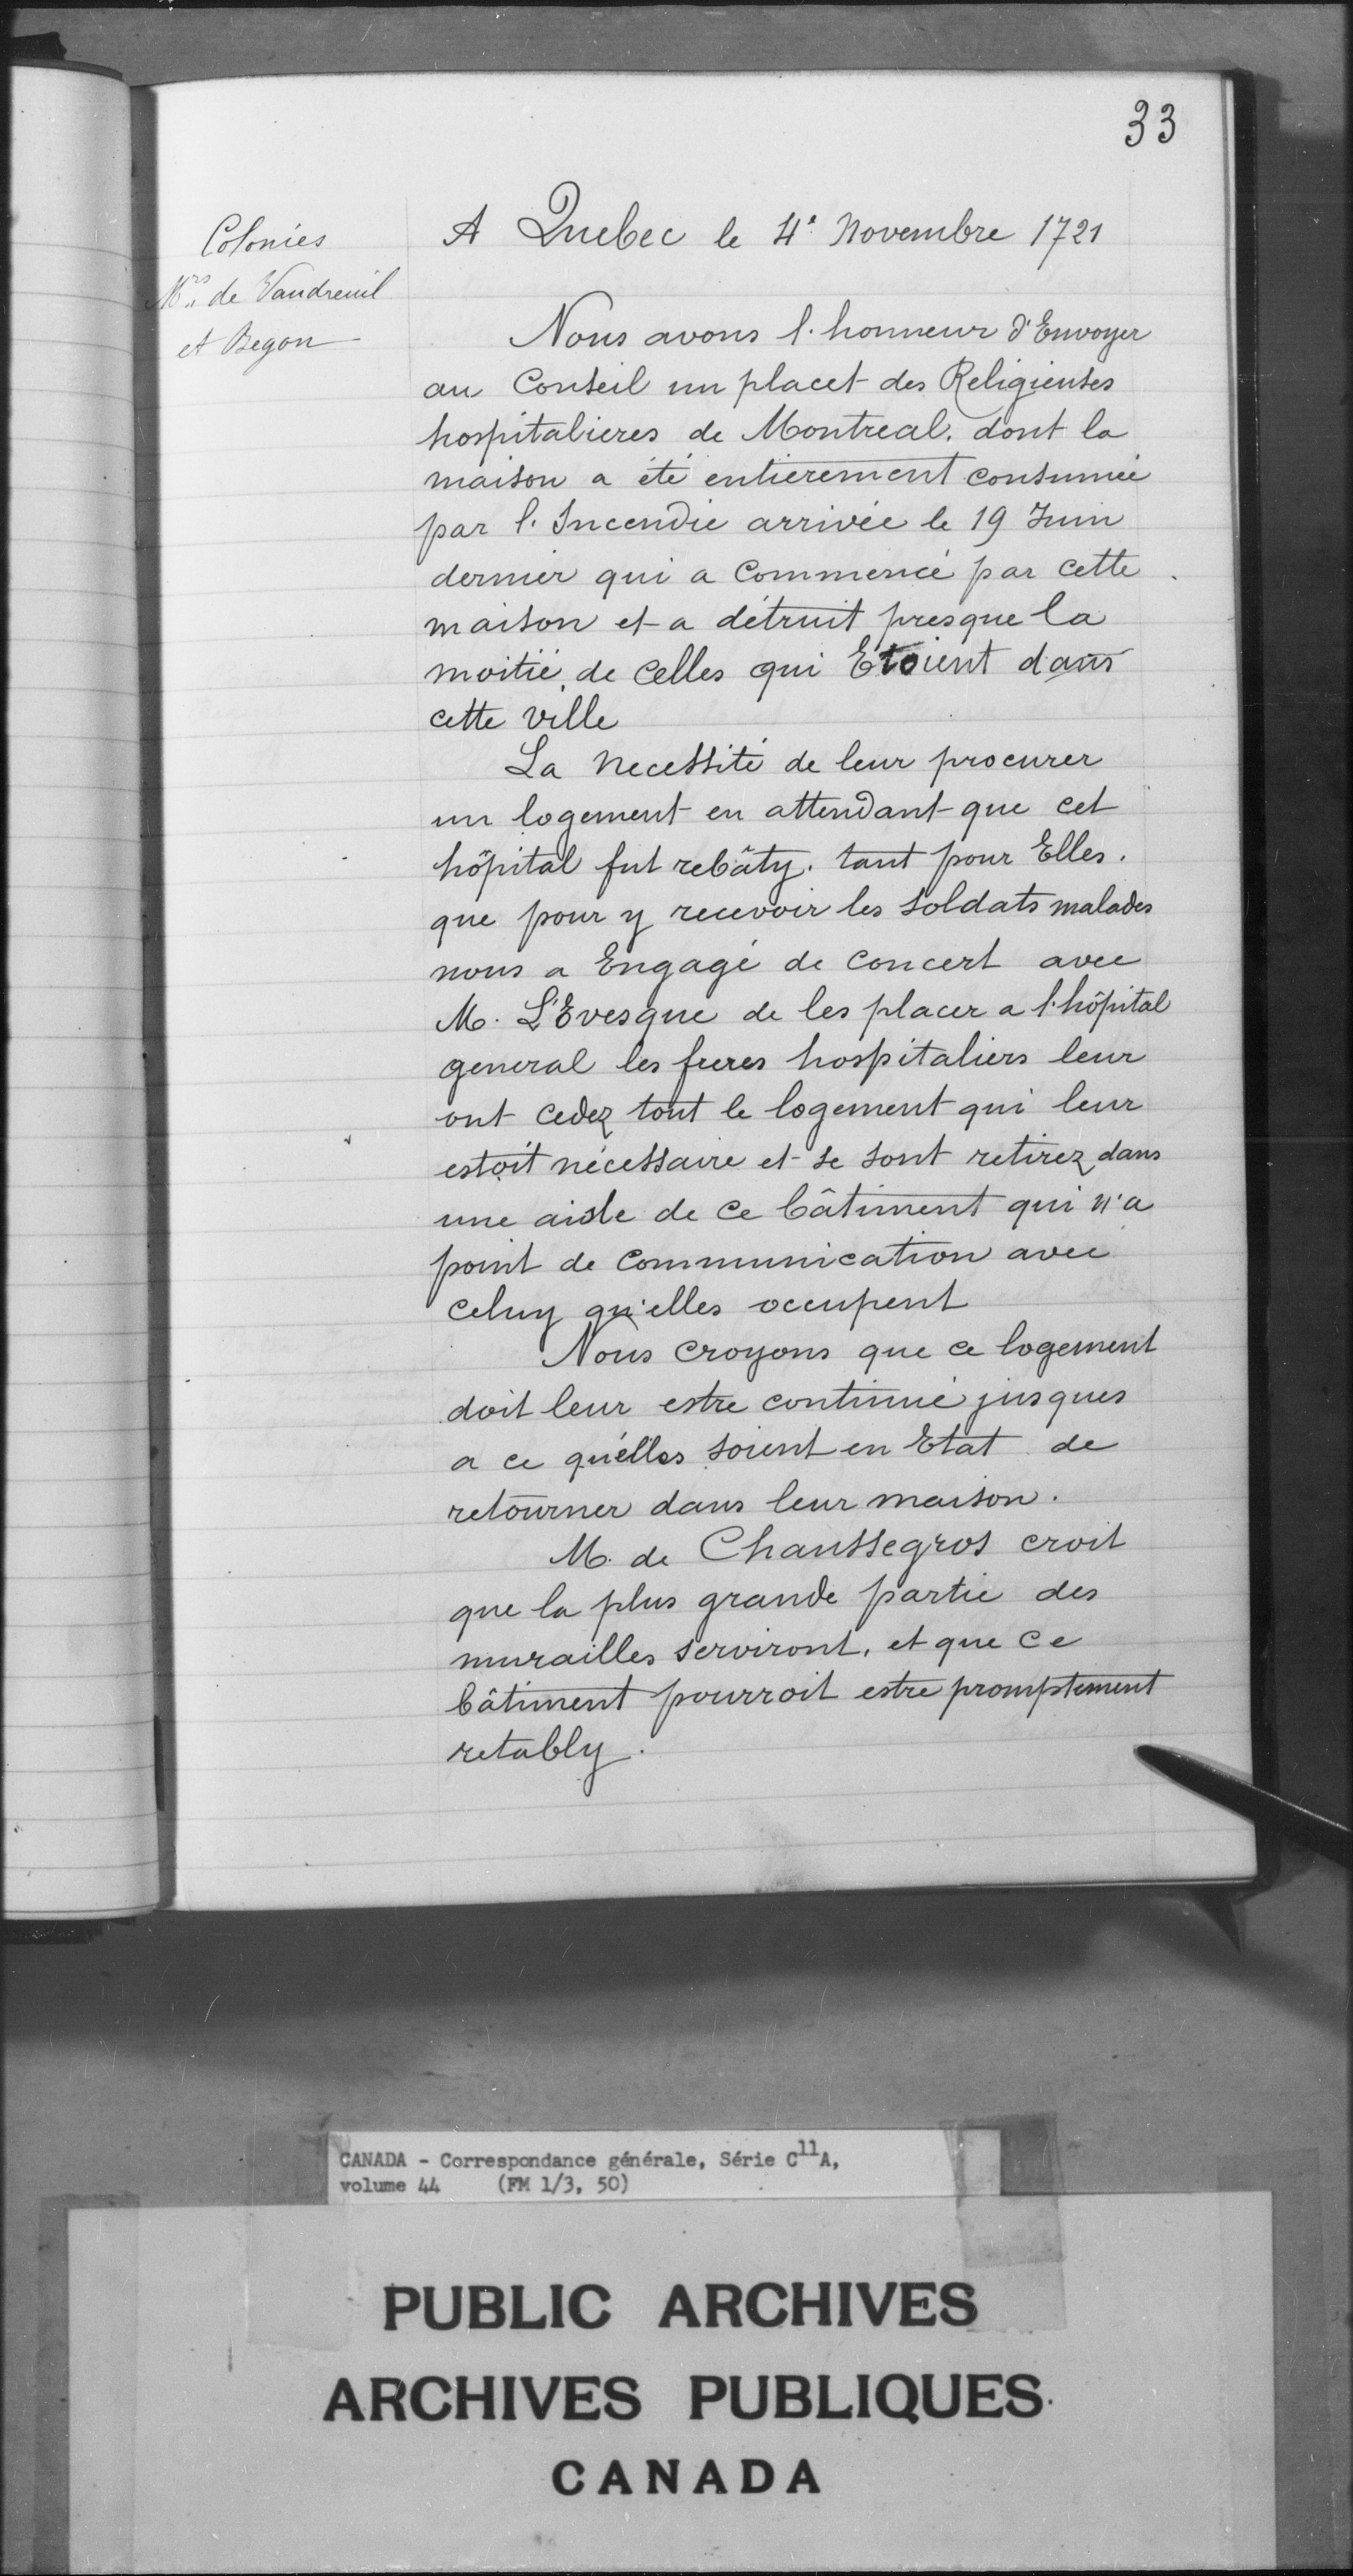 33
Colonies
Mrs de Vaudreuil
et Begon
A Quebec le 4e Novembre 1721
Nous avons l'honneur d'Envoyer
au Conseil un placet des Religieuses
hospitalieres de Montreal. dont la
maison a été entierement consumée
par l'Incendie arrivée le 19 Juin
dernier qui a commencé par cette
maison et a détruit presque la
moitié de celles qui Etoient dans
cette ville
La necessité de leur procurer
un logement en attendant que cet
hôpital fut rebâty. tant pour Elles.
que pour y recevoir les soldats malades
nous a Engagé de concert avec
M. L'Evesque de les placer a l'hôpital
general les freres hospitaliers leur
ont cedez tout le logement qui leur
estoit nécessaire et se sont retirez dans
une aisle de ce bâtiment qui n'a
point de communication avec
celuy qu'elles occupent
Nous croyons que ce logement
doit leur estre continué jusques
a ce qu'elles soient en Etat de
retourner dans leur maison.
M. de Chaussegros croit
que la plus grande partie des
murailles serviront, et que ce
bâtiment pourroit estre promptement
retably.
CANADA - Correspondance générale, Série C11A,
volume 44 (FM 1/3, 50)
PUBLIC ARCHIVES
ARCHIVES PUBLIQUES
CANADA